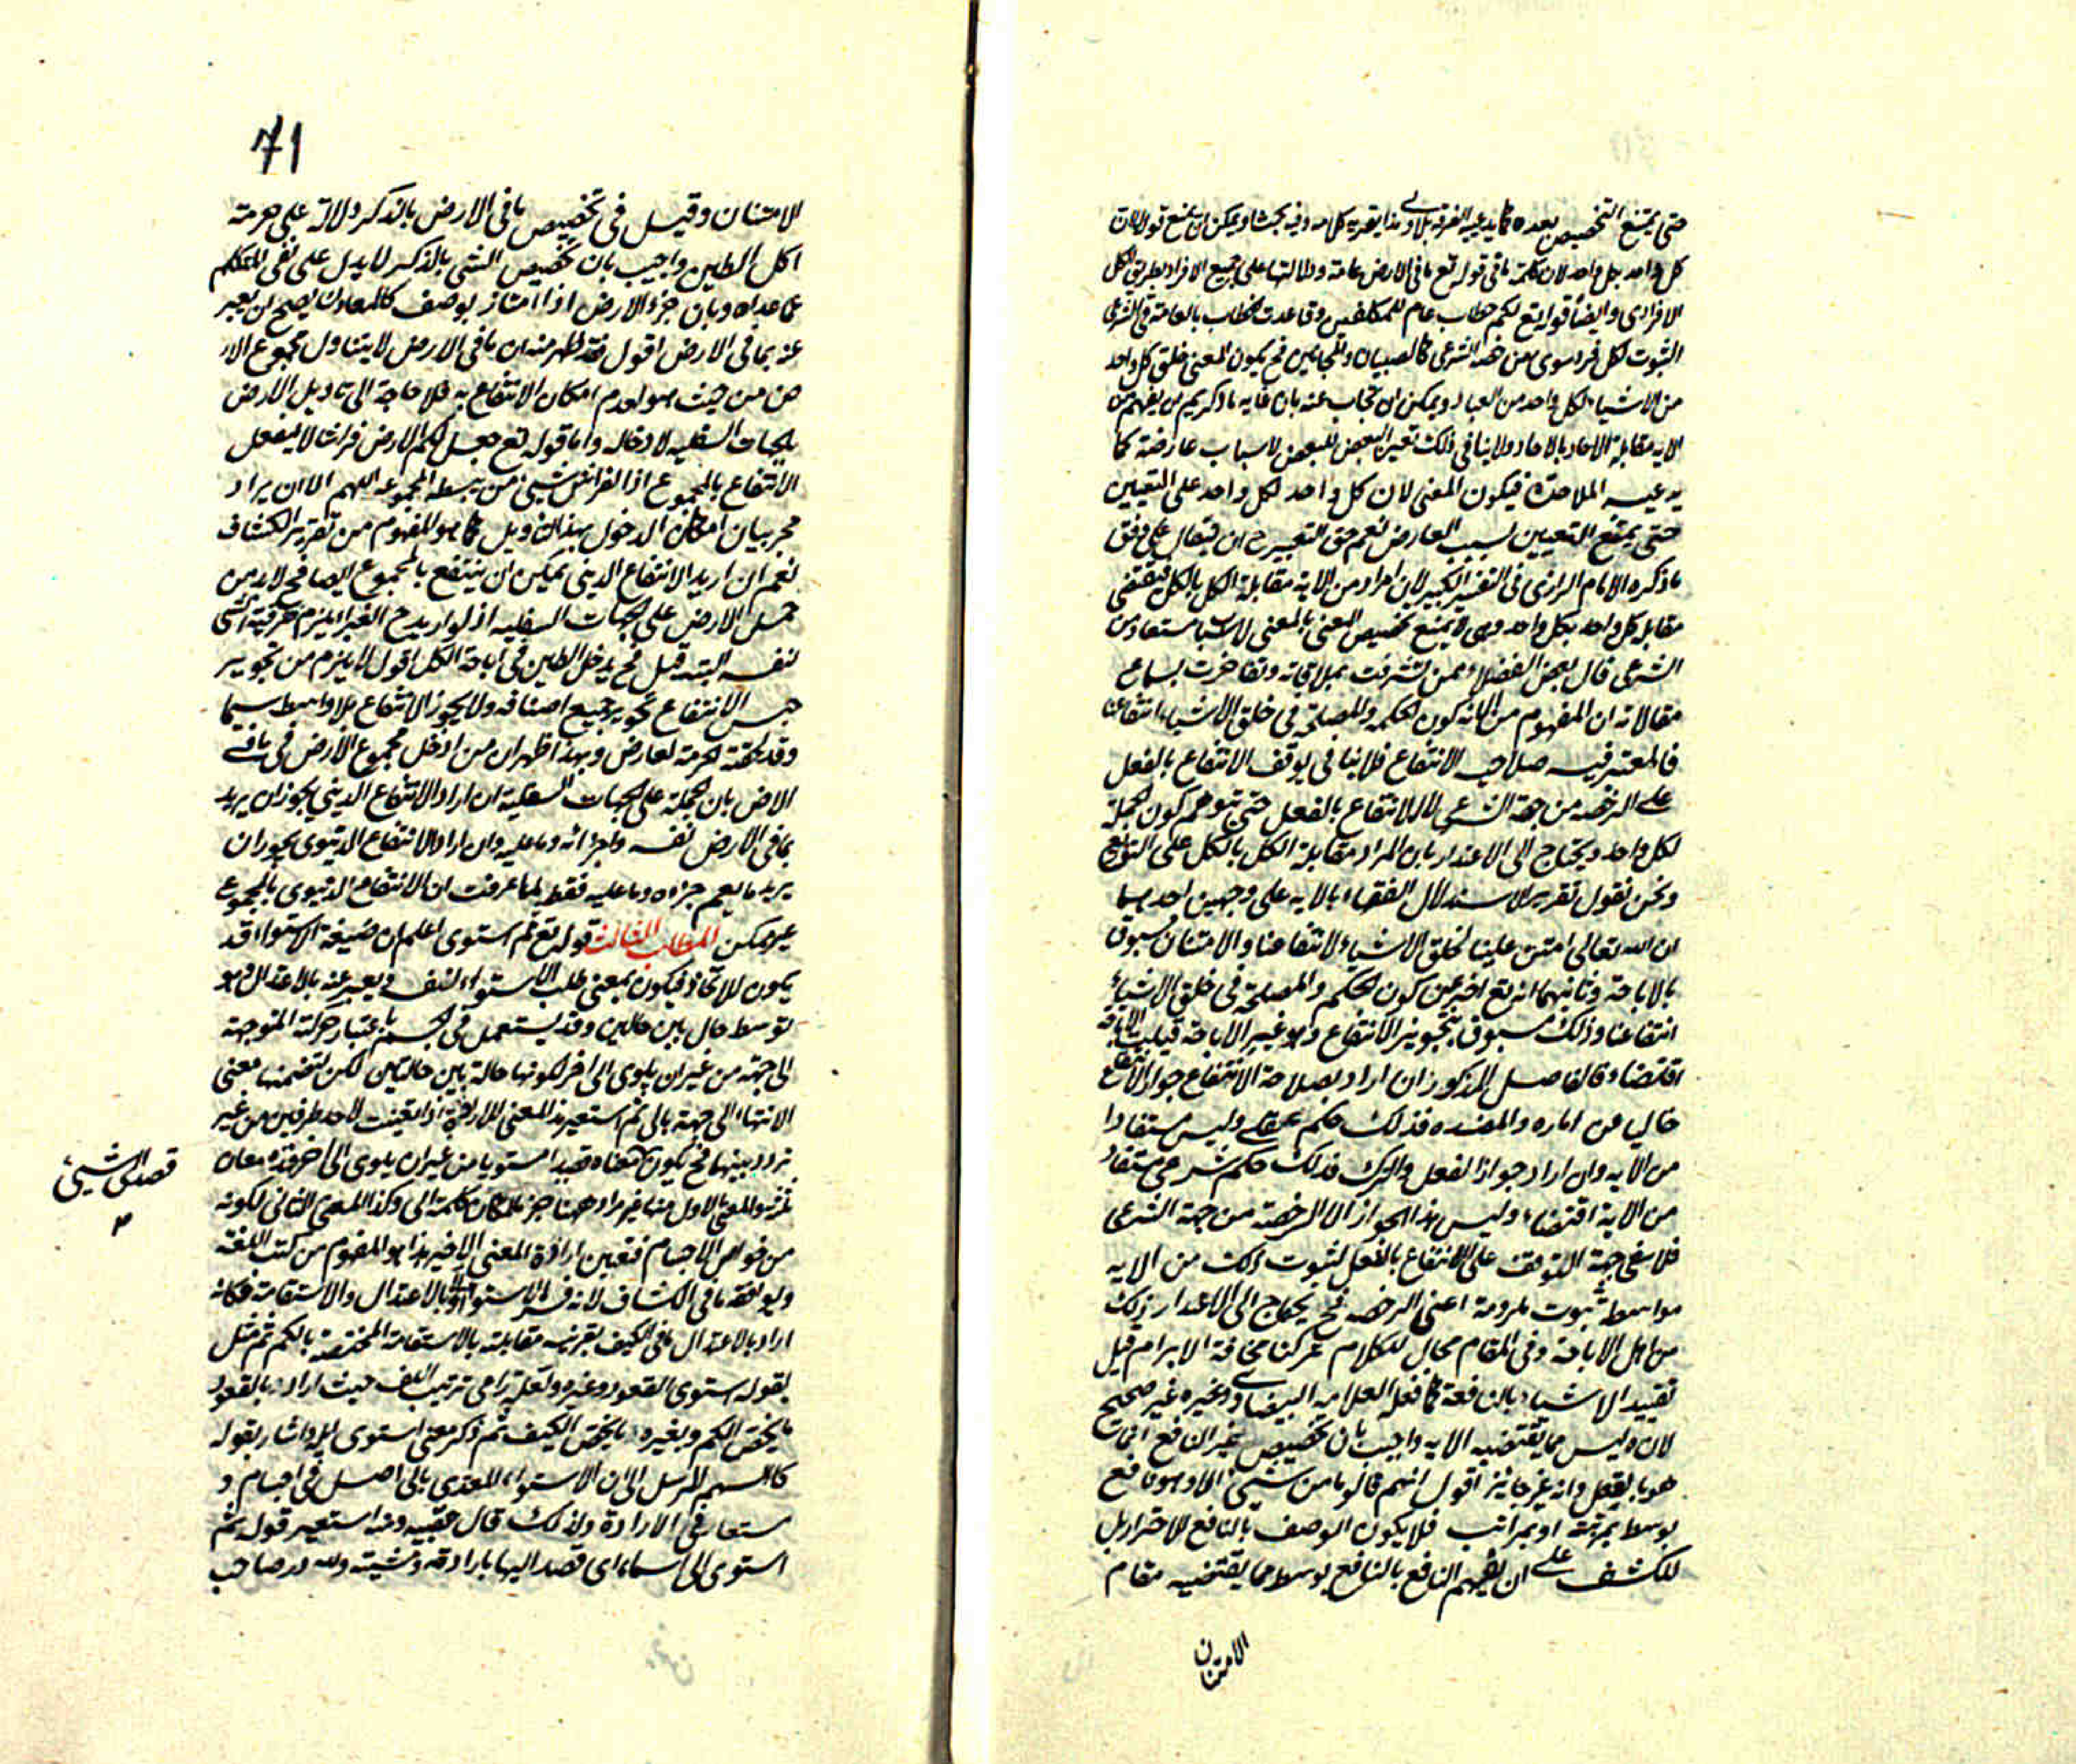 حتى يمتنع التخصيص بعده كما يدعيه الفرقة هذا تقرير كلامه وفيه بحث اذ يمكن ان يمنع قوله لان
كل واحد بكل واحد لان كلمة ما في قوله تع ما في الارض عامة ودلالتها على جميع الافراد بطريق الكل
الافرادى وايضا قوله تع لكم خطاب عام للمكلفين وقاعدة الخطاب بالعامة في الشرع
الثبوت لكل فرد سوى من خصه الشرع كالصبيان والمجانين فح يكون المعنى خلق كل واحد
من الاشياء لكل واحد من العباد ويمكن ان يجاب عنه بان غاية ما ذكر يم ان يفهم من
الاية مقابلة الاحاد بالاحاد ولا ينافى ذلك تعين البعض للبعض لاسباب عارضة كما
يدعيه الملاحدة فيكون المعنى لان كل واحد لكل واحد على التعيين
حتى يمتنع التعيين بسبب العارض نعم حق التعبير ح ان يقال على وفق
ما ذكره الامام الرازى في التفسير الكبير لان المراد من الاية مقابلة الكل بالكل فيقتضى
مقابلة كل واحد بكل واحد وهى لا يمنع تخصيص المعنى بالمعنى لاسباب مستعاد من
الشرع قال بعض الفضلاء ممن تشرفت بملاقاته وتفاخرت بسماع
مقالاته ان المفهوم من الاية كون الحكمة والمصلحة في خلق الاشياء انتفاعنا
فالمعتبر فيه صلاحية الانتفاع فلا ينافى توقف الانتفاع بالفعل
على الرخصة من جهة الشرع لا الانتفاع بالفعل حتى يتوهم كون الجملة
لكل واحد ويحتاج الى الاعتذار بان المراد مقابلة الكل بالكل على التوزيع
ونحن نقول تقرير الاستدلال الفقهاء بالاية على وجهين احدهما
ان الله تعالى امتن علينا بخلق الاشياء لانتفاعنا والامتنان مسبوق
بالاباحة وثانيهما انه تع اخبر عن كون الحكم والمصلحة في خلق الاشياء
انتفاعنا وذلك مسبوق بتجويز الانتفاع وهو غير الاباحة فيثبت الاباحة
اقتضاء فالفاضل المذكور ان اراد بصلاحة الانتفاع جواز الانتفاع
خاليا عن اماره والمفسده فذلك حكم عقلى وليس مستفادا
من الاية وان اراد جواز الفعل والترك فذلك حكم شرعى مستفاد
من الاية اقتضاء وليس هذا الجواز الا الرخصة من جهة الشرع
فلا جهة التوقف على الانتفاع بالفعل لثبوت ذلك من الاية
بواسطة ثبوت ملزومه اعنى الرخصة فح يحتاج الى الاعتذار ذلك
من اهل الاباحة وفي المقام مجال للكلام تركنا مخافة الابرام قيل
تقييد الاشياء بالنافعة كما فعله العلامة البيضاوى وغيره غير صحيح
لانه ليس مما يقتضيه الاية واجيب بان تخصيص غير النافع انما
هو بالعقل وانه غير جائز اقول انهم قالوا ما من شئ الا وهو نافع
بوسط بمرتبة او بمراتب فلا يكون الوصف بالنافع للاحتراز بل
للكشف على ان تفهيم النافع بالنافع بوسط مما يقتضيه مقام
الامتنان
71
الامتنان وقيل في تخصيص ما في الارض بالذكر دلالة على حرمة
اكل الطين واجيب بان تخصيص الشئ بالذكر لا يدل على نفى الحكم
عما عداه وبان جزء الارض اذا امتاز بوصف كالمعادن يصح ان يعبر
عنه بما في الارض اقول فقد ظهر منه ان ما في الارض لا يتناول مجموع الار
ض من حيث هو لعدم امكان الانتفاع به فلا حاجة الى تاويل الارض
بالجهات السفلية لادخاله واما قوله تع جعل لكم الارض فراشا لا يفعل
الانتفاع بالمجموع اذ الفراش شئ من بسطه المجموعه اللهم الا ان يراد
مجرد بيان امكان الدخول بهذا التاويل كما هو المفهوم من تقرير الكشاف
نعم ان اريد الانتفاع الدينى يمكن ان ينتفع بالمجموع ايضا فح لابد من
حمل الارض على الجهات السفلية اذ لو اريد ح الغبراء يلزم ظرفية الشئ
لنفسه البتة قيل فح يدخل الطين في اباحة الكل اقول لا يلزم من تجويز
جنس الانتفاع تجويز جميع اصنافه ولا يجوز الانتفاع بلا واسطة سيما
وقد لحقته الحرمة لعارض وبهذا ظهر ان من ادخل مجموع الارض في ما في
الارض بان حمله على الجهات السفلية ان اراد الانتفاع الدينى يجوز ان يريد
بما في الارض نفسه واجزائه وما عليه وان اراد الانتفاع الدنيوى يجوز ان
يريد ما يعم جزاه وما عليه فقط لما عرفت ان الانتفاع الدنيوى بالمجموع
غير ممكن المطلب الثالث قوله تع ثم استوى اعلم ان صيغة الاستواء قد
يكون للاتخاذ فيكون بمعنى طلب الاستواء لنفسه ويعبر عنه بالاعتدال وهو
توسط حال بين حالين وقد يستعمل في الجسم باعتبار حركته المتوجهة
الى جهة من غير ان يلوى الى اخر لكونها حالة بين حالتين لكن لتضمنها معنى
الانتهاء الى جهة بالى ثم استعير هذا المعنى للارادة اذا تعينت لاحد طرفين من غير
تردد بينهما فح يكون معناه قصد امستويا من غير ان يلوى الى اخر فهذه معان
ثلثة والمعنى الاول منها غير مراد ههنا جزما لمكان كلمة الى وكذا المعنى الثانى لكونه
من خواص الاجسام فتعين ارادة المعنى الاخير هذا هو المفهوم من كتب اللغة
ويوافقه ما في الكشاف لانه فسر الاستواء اولا بالاعتدال والاستقامة فكانه
اراد بالاعتدال ما في الكيف بقرينة مقابلته بالاستقامة المختصة بالكم ثم مثل
بقوله استوى القعود وغيره ولعله راعى ترتيب اللف حيث اراد بالقعود
ما يختص الكم وبغيره ما يختص الكيف ثم ذكر معنى استوى اليه واشار بقوله
كالسهم المرسل الى ان الاستواء المعدى بالى اصل في اجسام و
مستعار في الارادة ولذلك قال عقيبه ومنه استعير قوله ثم
استوى الى السماء اى قصد اليها بارادته ومشيته ولله در صاحب
قصد الى الشئ